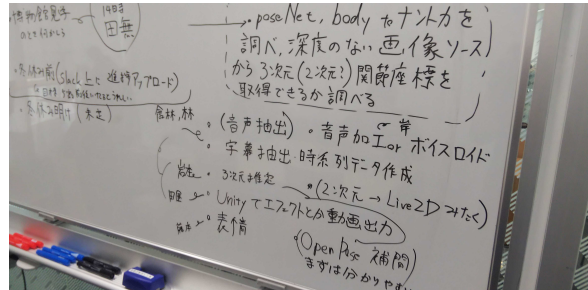 ・博物館見学
のとき何かから
14日時
田無
・冬休み前(Slack上に進捗アップロード)
・冬休み明け(未定)
・poseNet, body to ナントカを
調べ、深度のない画像ソース
から3次元(2次元?)関節座標を
取得できるか調べる
・(音声抽出)・音声加工orボイスロイド
・字幕抽出・時系列データ作成
・3次元は推定
・(2次元→Live2Dみたく)
・Unityでエフェクトとか動画出力
・表情
・(OpenPose 補間)
まずは分かりやす